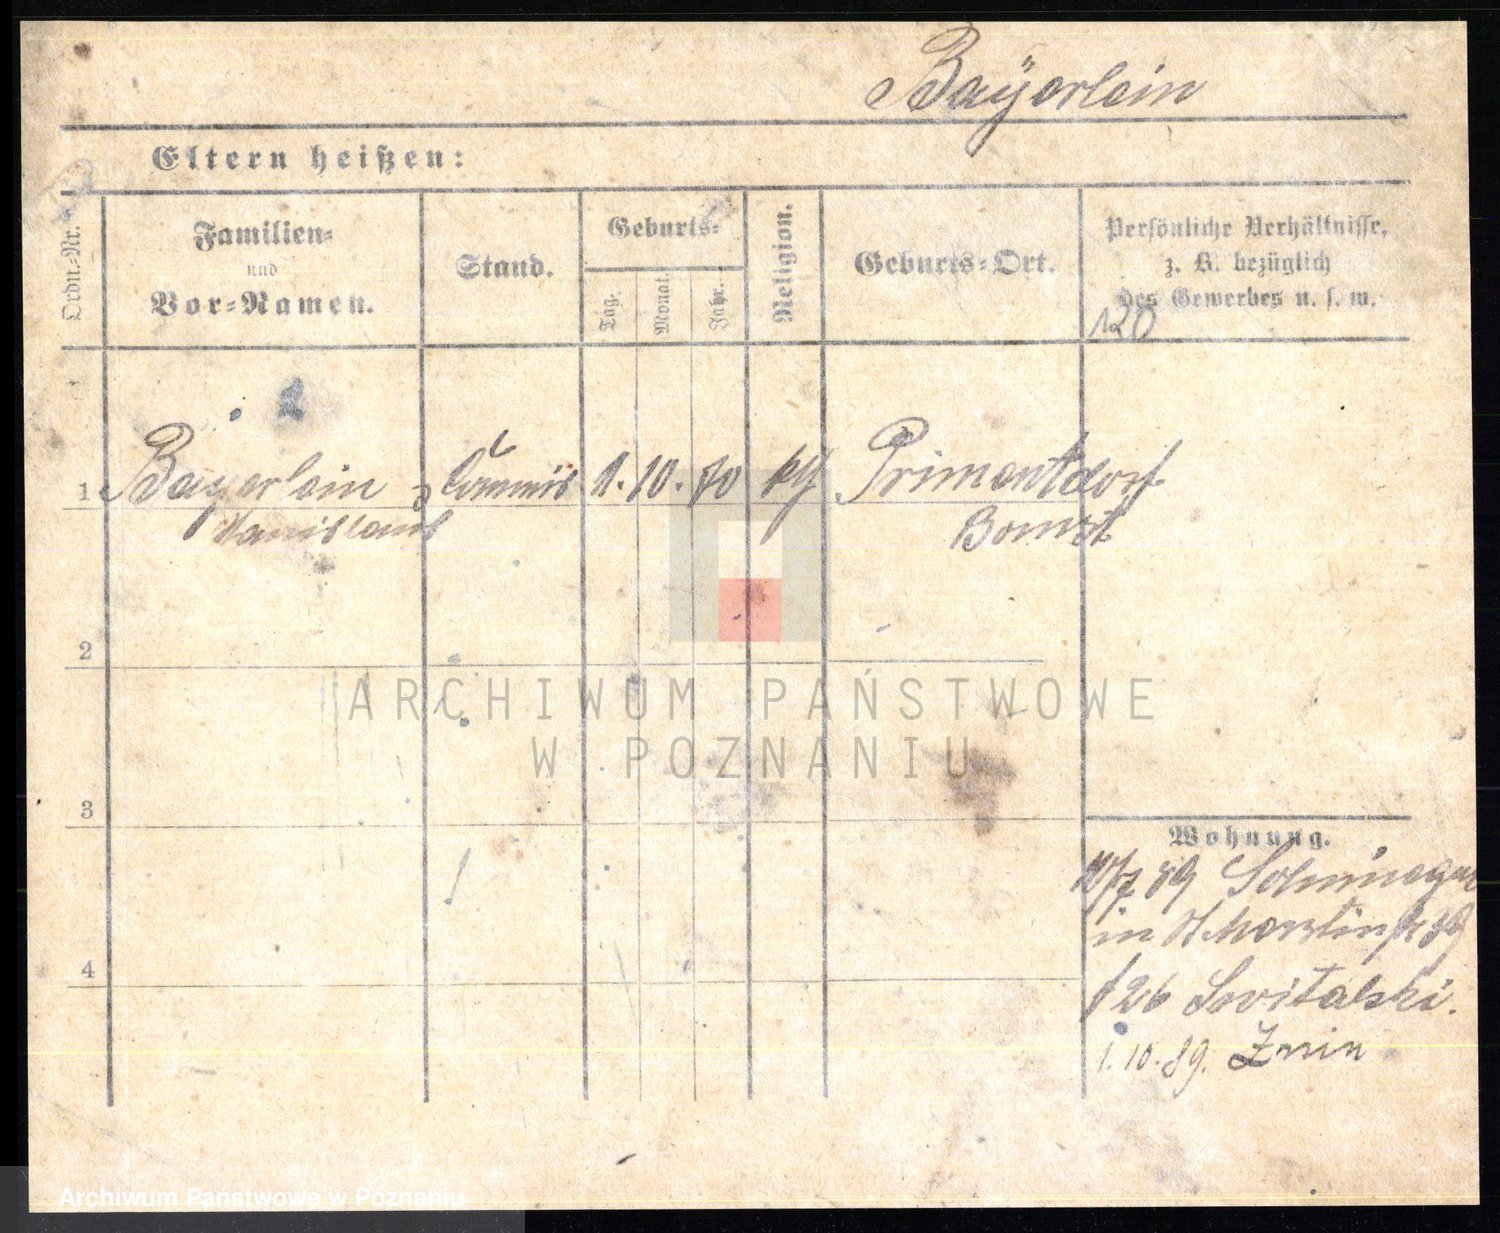 Baÿerlein
Eltern heißen:
Ordn.-Nr.
Familien-
und
Vor-Namen.
Stand.
Geburts-
Tag.
Monat.
Jahr.
Religion.
Geburts-Ort.
Persönliche Verhältnisse,
z. B. bezüglich
des Gewerbes u. s. w.
120
1 Bayerlein Commis 1. 10. 70 Primentdorf
Stanislaus Bomst
2
3
4
Wohnung.
89
in St Martin
26 Switalski.
1. 10. 89. Znin
ARCHIWUM PAŃSTWOWE
W POZNANIU
Archiwum Państwowe w Poznaniu